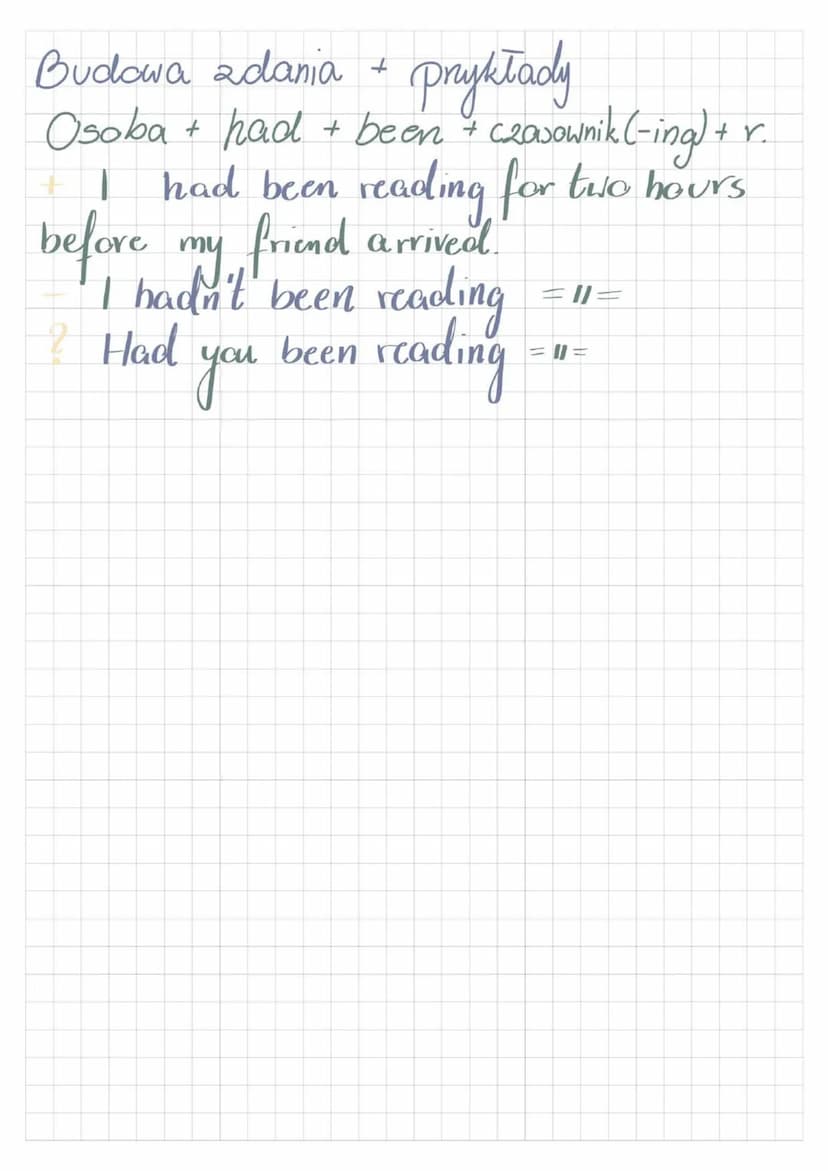 Budowa zdania + przykłady
Osoba + had + been + czasownik (-ing) + r.
+ I had been reading for two hours
before my friend arrived.
- I hadn't been reading =//=
? Had you been reading =//=